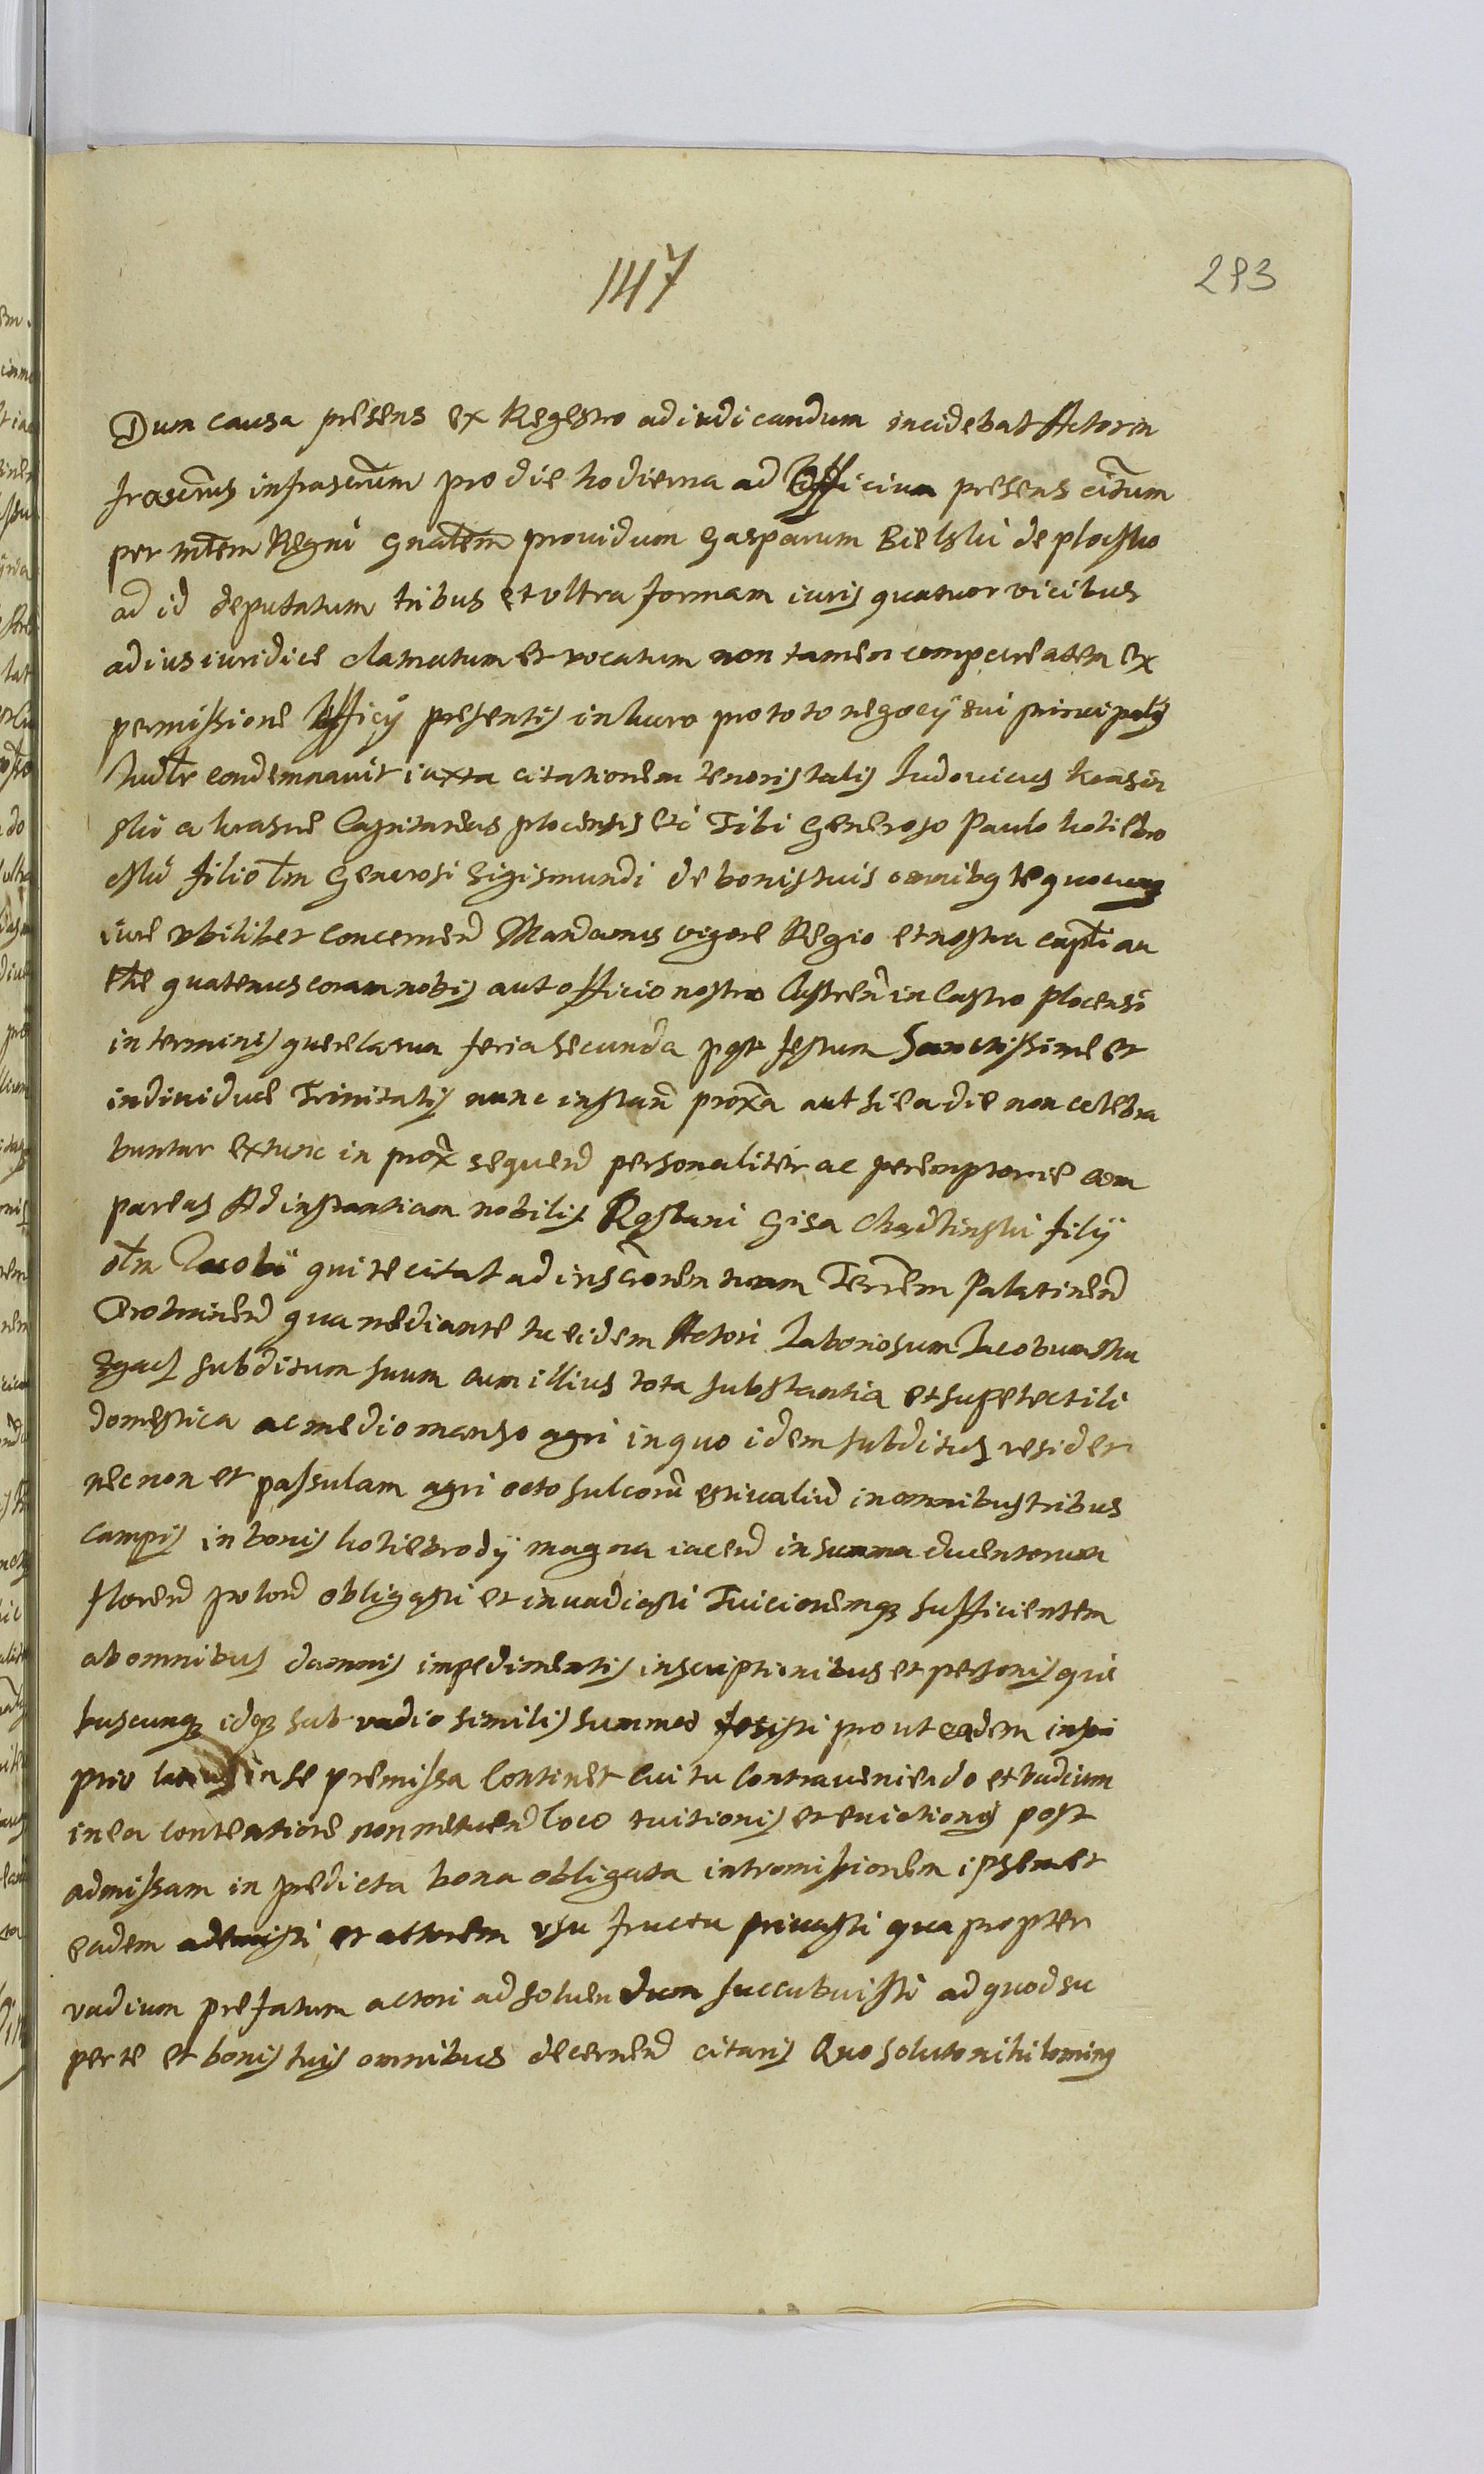 147
293
Dum causa presens ex Regestro ad iudicandum incidebat Actor in
frascrus infrascrum pro die hodierna ad Officium presens citum
per mtem Regni gnalem prouidum Gasparum Bielski de plocsko
ad id deputatum tribus et vltra formam iuris quatuor vicibus
ad ius iuridice clamatum et vocatum non tamen comparentem ex
permissione Officÿ presentis in lucro pro toto negocÿ sui principalis
Iudlr condemnauit iuxta citationem tenoris talis Ludouicus Krasin
ski a krasne Capitaneus plocensis etc Tibi Generoso Paulo koliebro
cskÿ filio olm Generosi Sigismundi de bonis tuis omnibq te quocunq
iure vbilibet concernen Mandamus vigore Regio et nostra capli au
cte quatenus coram nobis aut officio nostro Castren in Castro Plocensi
in terminis querelarum feria secunda post festum Sanctissime et
indiuiduae Trinitatis nunc instan proxa aut si ea die non celebra
buntur extunc in prox sequen personaliter ac peremptorie com
pareas Ad instantiam nobilis Rostani Gisa Chadkinski filÿ
olm Jacobi qui te citat ad inscronem tuam Terrem Palatinen
Brobninen qua mediante tu eidem Actori Laboriosum Jacobum
subditum suum cum illius tota substantia et supelectili
domestica ac medio manso agri in quo idem subditus resider
nec non et passulam agri octo sulcoru estiualiu in omnibus tribus
campis in bonis koliebrodÿ magna iacen in summa ducentorum
floren polon obligasti et inuadiasti Tuicionemq sufficientem
ab omnibus damnis impedimentis inscriptionibus et personis qui
buscunq idq sub vadio similis summae fecisti prout eadem inscri
ptio latius in se premissa continet Cui tu contraueniendo et vadium
in ea contentione non metuen loco tuitionis et euictionis post
admissam in predicta bona obligata intromissionem ipsemet
eadem ademisti et actorem vsu fructu priuasti qua propter
vadium prefatum actori ad soluendum succubuisti ad quod su
per te et bonis tuis omnibus decernen citaris Quo soluto nihilominq